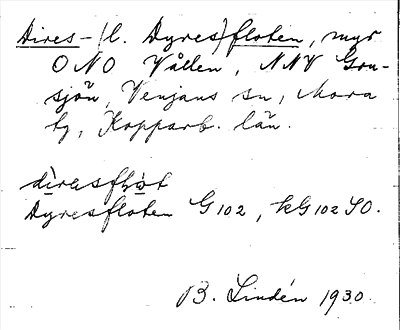 Dires- (l. Dyres)floten, myr
ONO Vållen, NNV Gru-
sjön, Venjans sn, Mora
tg, Kopparb. län.
diresflöt
Dyresfloten G102, kG102 SO.
B. Lindén 1930.